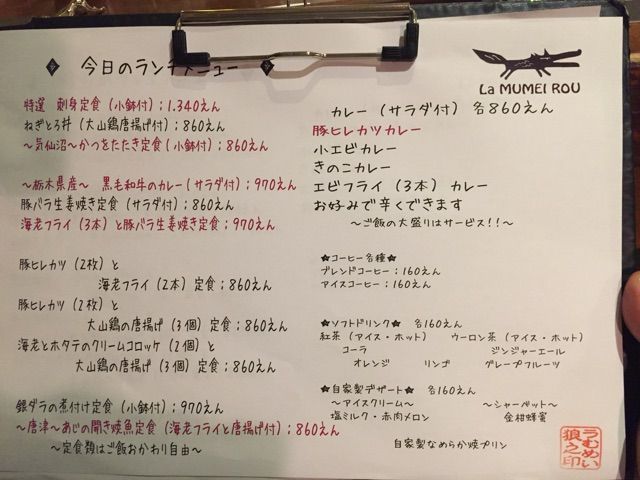 今日のランチメニュー
特選 刺身定食(小鉢付);1.340えん
ねぎとろ丼(大山鶏唐揚げ付);860えん
～気仙沼～かつをたたき定食(小鉢付);860えん
～栃木県産～ 黒毛和牛のカレー(サラダ付);970えん
豚バラ生姜焼き定食(サラダ付);860えん
海老フライ(3本)と豚バラ生姜焼き定食;970えん
豚ヒレカツ(2枚)と
海老フライ(2本)定食;860えん
豚ヒレカツ(2枚)と
大山鶏の唐揚げ(3個)定食;860えん
海老とホタテのクリームコロッケ(2個)と
大山鶏の唐揚げ(3個)定食;860えん
銀ダラの煮付け定食(小鉢付);970えん
～唐津～あじの開き焼魚定食(海老フライと唐揚げ付);860えん
～定食類はご飯おかわり自由～
La MUMEI ROU
カレー(サラダ付)各860えん
豚ヒレカツカレー
小エビカレー
きのこカレー
エビフライ(3本)カレー
お好みで辛くできます
～ご飯の大盛りはサービス!!～
★コーヒー各種★
ブレンドコーヒー;160えん
アイスコーヒー;160えん
★ソフトドリンク★ 各160えん
紅茶(アイス・ホット) ウーロン茶(アイス・ホット)
コーラ ジンジャーエール
オレンジ リンゴ グレープフルーツ
★自家製デザート★ 各160えん
～アイスクリーム～ ～シャーベット～
塩ミルク・赤肉メロン 金柑蜂蜜
自家製なめらか焼プリン
うむめい
狼之印